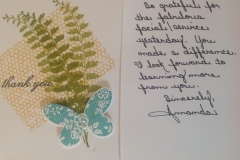 thank you
So grateful for
the fabulous
facial/service
yesterday. You
made a difference.
I look forward to
learning more
from you.
Sincerely,
Amanda